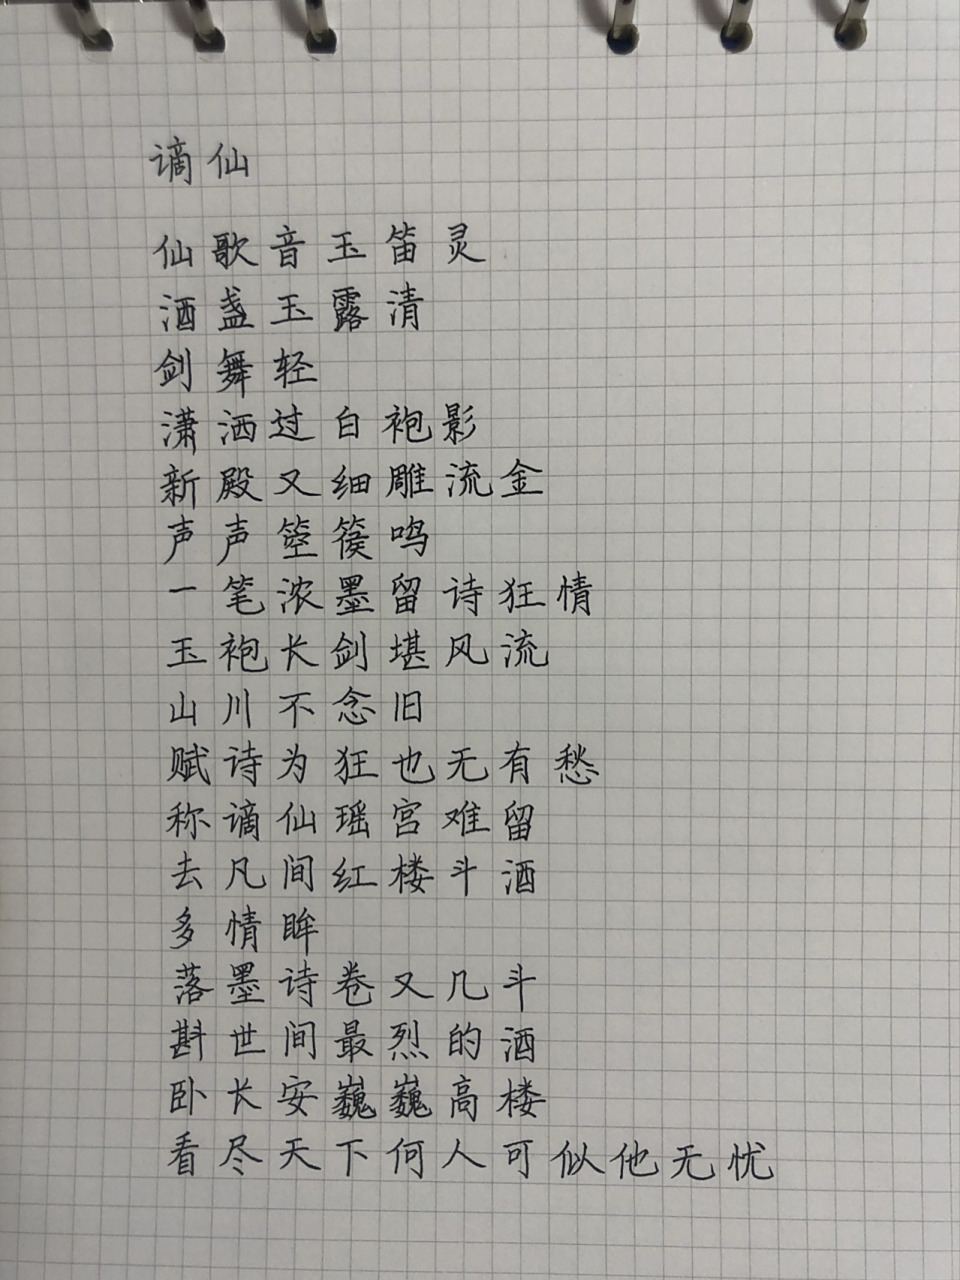 谪仙
仙歌音玉笛灵
酒盏玉露清
剑舞轻
潇洒过白袍影
新殿又细雕流金
声声箜篌鸣
一笔浓墨留诗狂情
玉袍长剑堪风流
山川不念旧
赋诗为狂也无有愁
称谪仙瑶宫难留
去凡间红楼斗酒
多情眸
落墨诗卷又几斗
斟世间最烈的酒
卧长安巍巍高楼
看尽天下何人可似他无忧